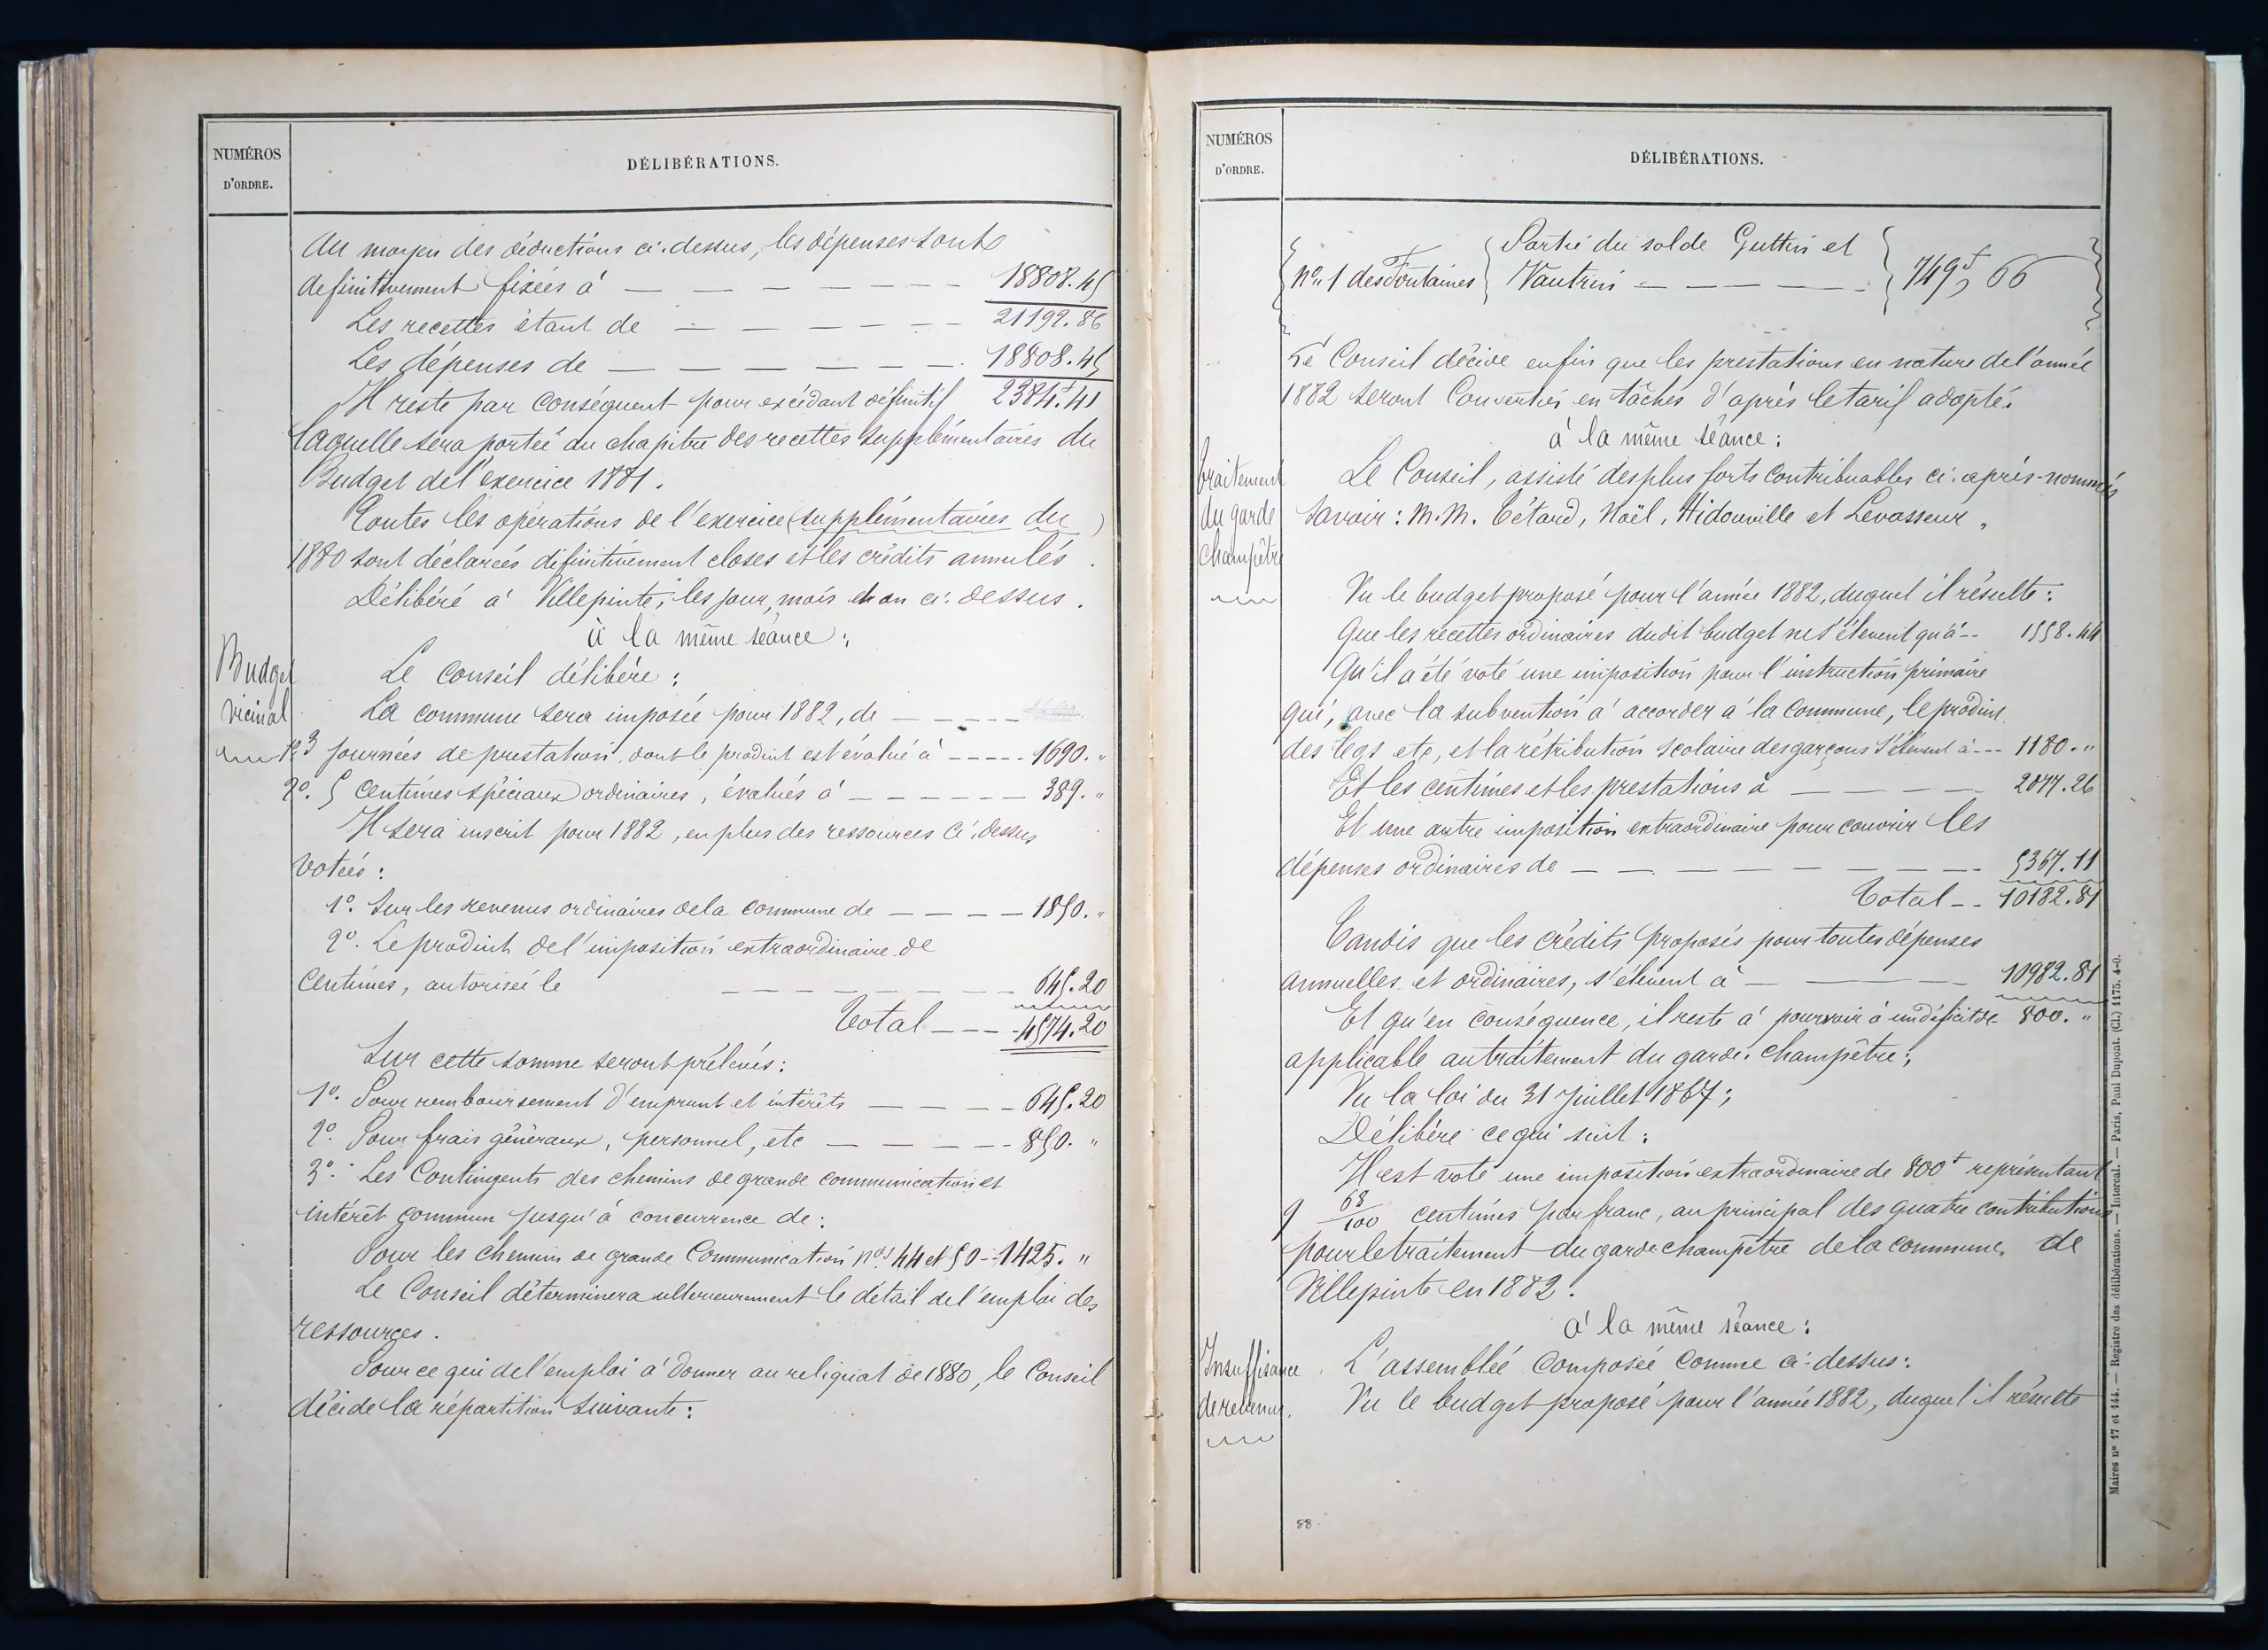 NUMÉROS
D'ORDRE.
DÉLIBÉRATIONS.
Au moyen des déductions ci-dessus, les dépenses sont
definitivement fixées à — — — — — — — 18808.45
Les recettes étant de — — — — — — 21192.86
Les dépenses de — — — — — — — 18808.45
Il reste par conséquent pour excédant définitif 2384.41
laquelle sera portée au chapitre des recettes supplémentaires du
Budget de l'exercice 1881.
Toutes les opérations de l'exercice (supplémentaires du)
1880 sont déclarées définitivement closes et les crédits annulés.
Délibéré à Villepinte, les jour, mois et an ci-dessus.
à la même séance:
Budget
vicinal
Le Conseil délibère:
La commune sera imposée pour 1882, de — — — —
1º. 3 journées de prestation, dont le produit est évalué à ----- 1690."
2º. 5 centimes spéciaux ordinaires, évalués à — — — — — — 389."
Il sera inscrit pour 1882, en plus des ressources ci-dessus
votées:
1º. Sur les revenus ordinaires de la commune de — — — — 1850."
2º. Le produit de l'imposition extraordinaire de
centimes, autorisée le — — — — — — — 645.20
Total — — — 4574.20
Sur cette somme seront prélevés:
1º. Pour remboursement d'emprunt et intérêts — — — — 645.20
2º. Pour frais généraux, personnel, etc — — — — — 850."
3º. Les Contingents des chemins de grande communication et
intérêt commun jusqu'à concurrence de:
Pour les chemins de grande Communication nos. 44 et 50 -- 1425."
Le Conseil déterminera ulterieurement le détail de l'emploi des
ressources.
Pour ce qui de l'emploi à donner au reliquat de 1880, le Conseil
décide la répartition suivante:
NUMÉROS
D'ORDRE.
DÉLIBÉRATIONS.
nº. 1 des Fontaines { Partie du solde Guttin et
Vautrin — — — — — } 749f, 66
Le Conseil décide enfin que les prestations en nature de l'année
1882 seront Converties en tâches d'après le tarif adopté.
à la même séance:
Traitement
du garde
champêtre
Le Conseil, assisté des plus forts contribuables ci-après-nommés
savoir: M.M. Tétard, Noël, Hidouville et Levasseur,
Vu le budget proposé pour l'année 1882, duquel il résulte:
Que les recettes ordinaires dudit budget ne s'élèvent qu'à -- 1558.44
Qu'il a été voté une imposition pour l'instruction primaire
qui, avec la subvention à accorder à la Commune, le produit
des legs etc, et la rétribution scolaire des garçons s'élèvent à --- 1180."
Et les centimes et les prestations à — — — — — 2077.26
Et une autre imposition extraordinaire pour couvrir les
dépenses ordinaires de — — — — — — — — — 5367.11
Total -- 10182.81
Tandis que les crédits proposés pour toutes dépenses
annuelles et ordinaires, s'élèvent à — — — — 10982.81
Et qu'en conséquence, il reste à pourvoir à un déficit de 800."
applicable au traitement du garde-champêtre;
Vu la loi du 31 juillet 1867;
Délibère ce qui suit:
Il est voté une imposition extraordinaire de 800f représentant
9 68/100 centimes par franc, au principal des quatre contributions
pour le traitement du garde champêtre de la commune de
Villepinte en 1882.
à la même séance:
Insuffisance
de revenus.
L'assemblée composée comme ci-dessus:
Vu le budget proposé pour l'année 1882, duquel il résulte
88.
Maires nº 17 et 144. — Registre des délibérations. — Intercal. — Paris, Paul Dupont. (Cl.) 1175. 4-0.